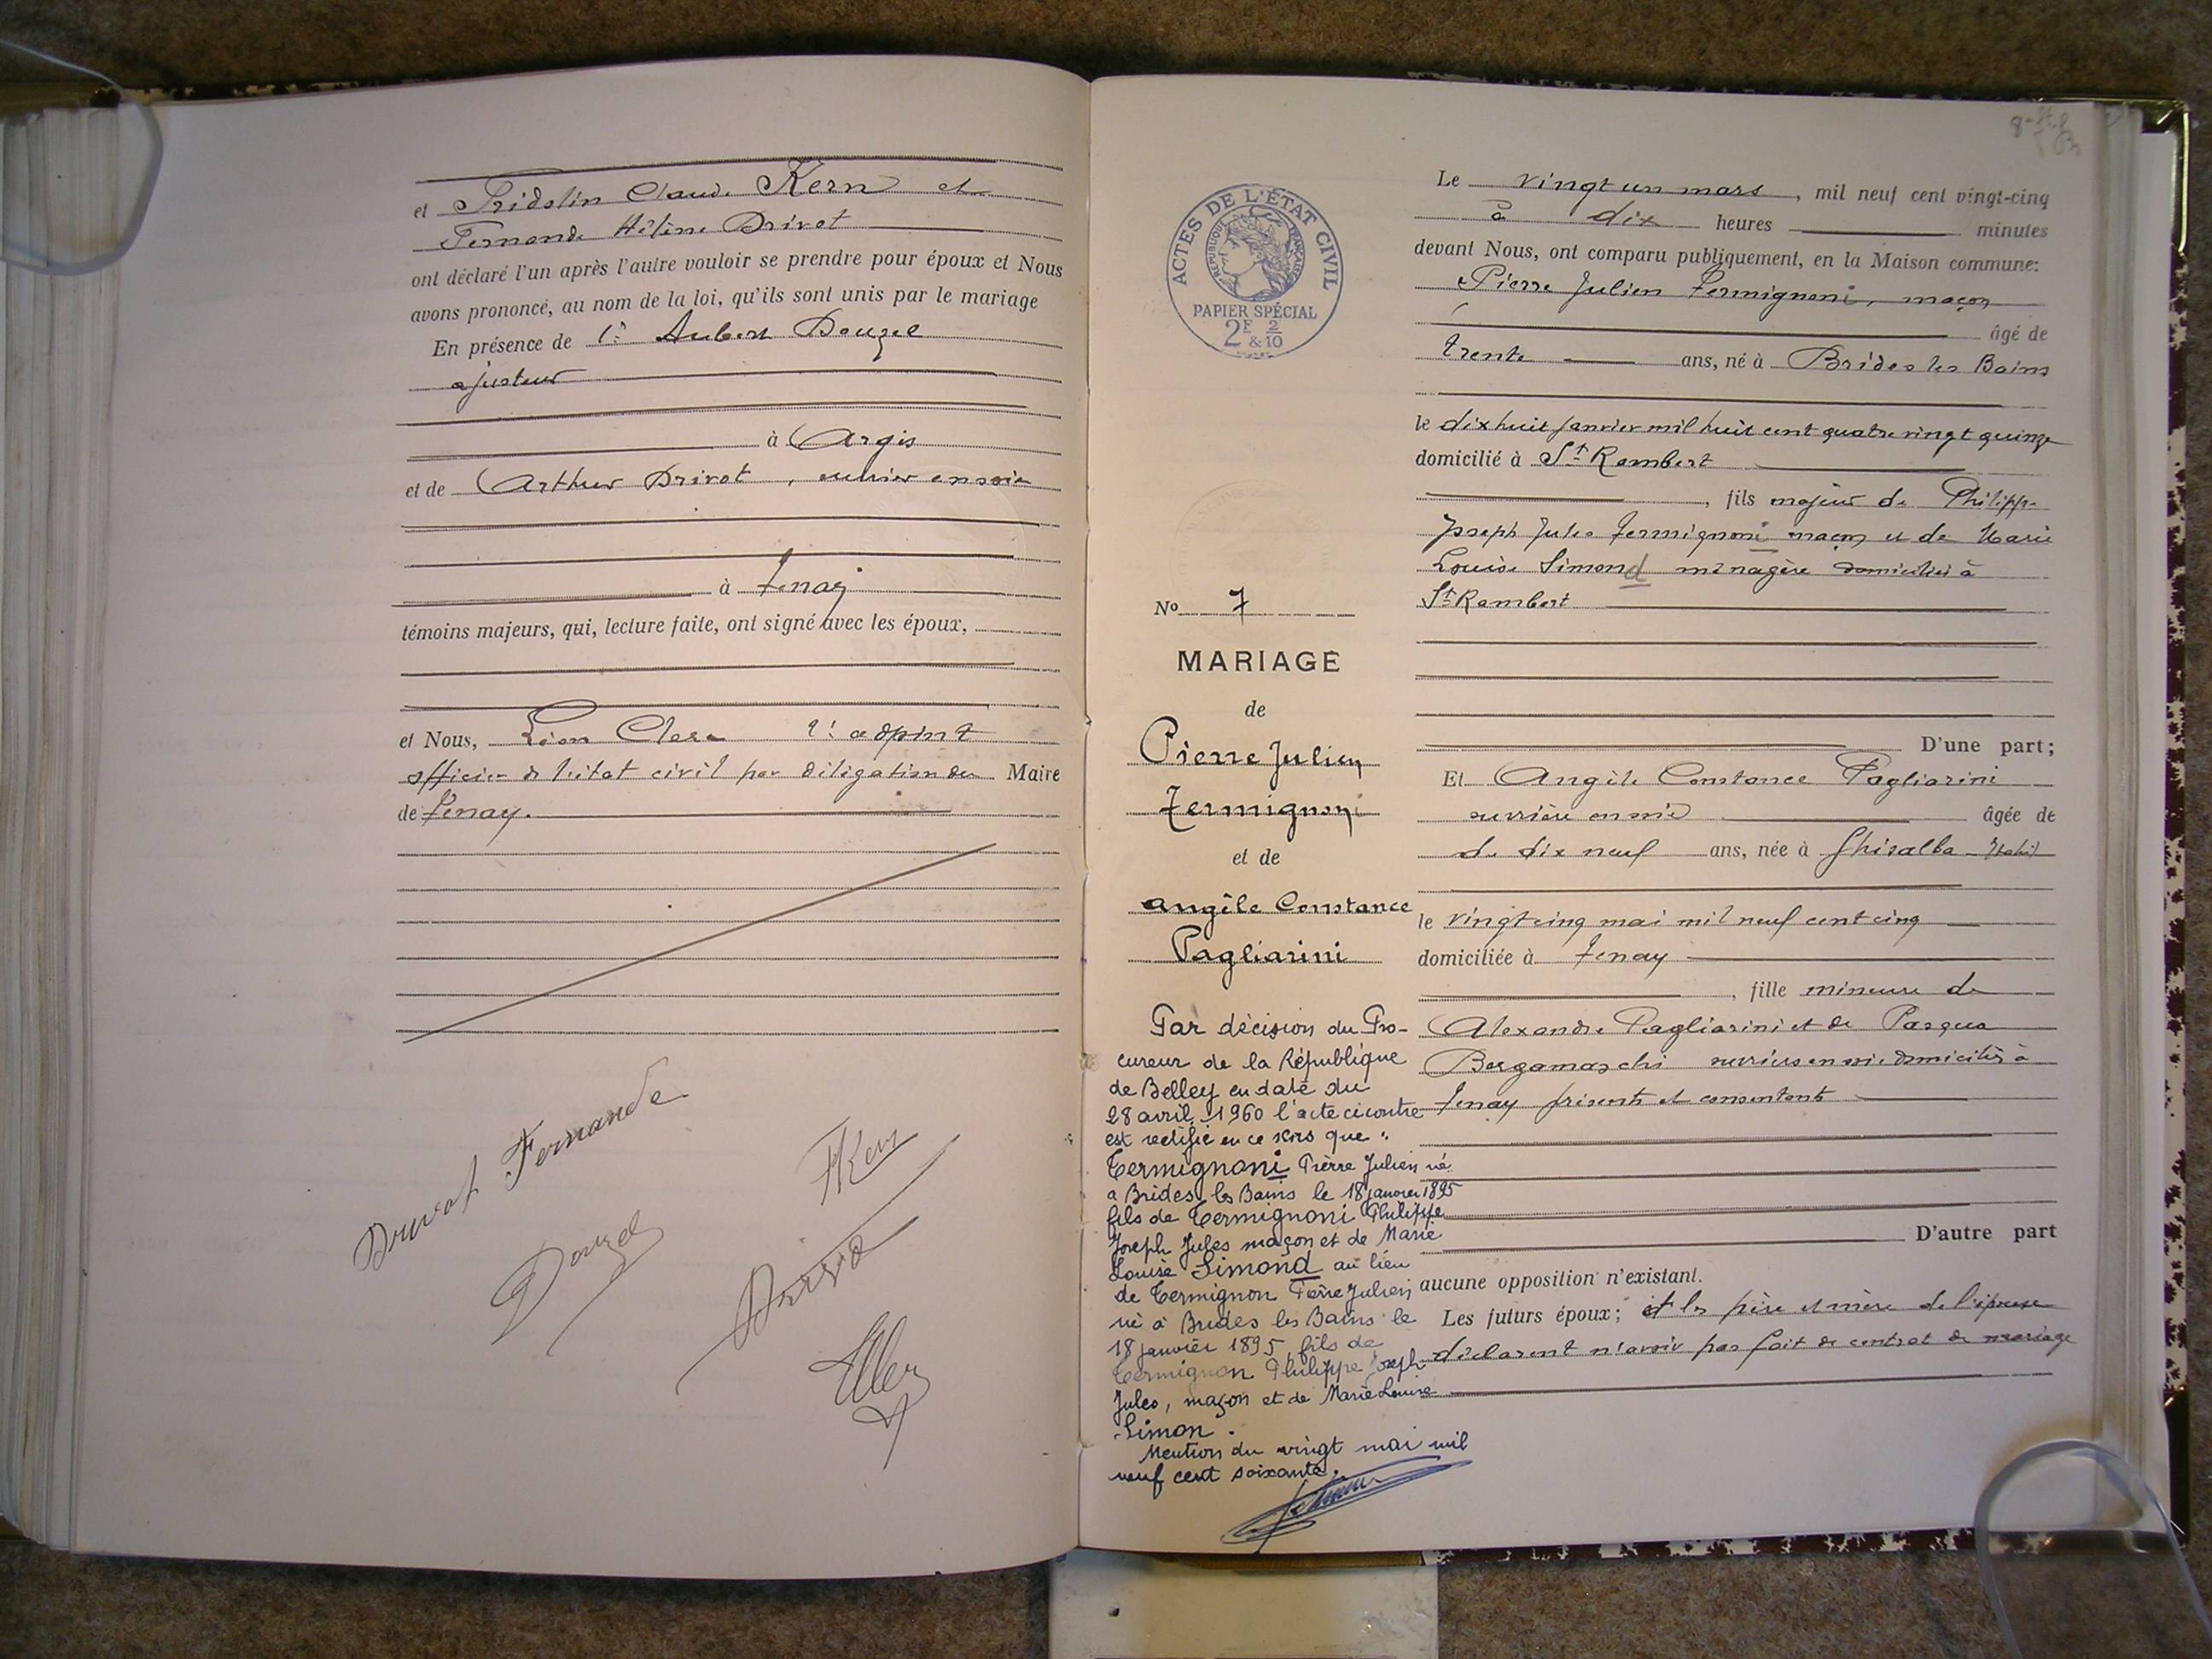 et Fridolin Claude Kern et
Fernande Hélène Drivot
ont déclaré l'un après l'autre vouloir se prendre pour époux et Nous
avons prononcé, au nom de la loi, qu'ils sont unis par le mariage
En présence de 1° Aubert Douzel
ajusteur
à Argis
et de Arthur Drivot, ouvrier en soie
à Tenay
témoins majeurs, qui, lecture faite, ont signé avec les époux,
et Nous, Léon Clerc adjoint
officier de l'état civil par délégation du Maire
de Tenay.
Fernande
FKern
Douzel
ACTES DE L'ÉTAT CIVIL
RÉPUBLIQUE FRANÇAISE
PAPIER SPÉCIAL
2F 2
& 10
No 7
MARIAGE
de
Pierre Julien
Termignoni
et de
Angèle Constance
Pagliarini
Par décision du Pro-
cureur de la République
de Belley en date du
28 avril 1960 l'acte ci contre
est rectifié en ce sens que :
Termignoni Pierre Julien né
a Brides les Bains le 18 janvier 1895
fils de Termignoni Philippe
Joseph Jules maçon et de Marie
Louise Simond au lieu
de Termignon Pierre Julien
né à Brides les Bains le
18 janvier 1895, fils de
Termignon Philippe Joseph
Jules, maçon et de Marie Louise
Simon.
Mention du vingt mai mil
neuf cent soixante.
Le vingt un mars, mil neuf cent vingt-cinq
à dix heures minutes
devant Nous, ont comparu publiquement, en la Maison commune:
Pierre Julien Termignoni, maçon
âgé de
trente ans, né à Brides les Bains
le dix huit janvier mil huit cent quatre vingt quinze
domicilié à St Rambert
, fils majeur de Philippe
Joseph Jules Termignoni maçon et de Marie
Louise Simond ménagère domiciliés à
St Rambert
D'une part;
Et Angèle Constance Pagliarini
ouvrière en soie âgée de
de dix neuf ans, née à Ghisalba Italie
le vingt cinq mai mil neuf cent cinq
domiciliée à Tenay
, fille mineure de
Alexandre Pagliarini et de Pasqua
Bergamaschi ouvriers en soie domiciliés à
Tenay présents et consentants
D'autre part
aucune opposition n'existant.
Les futurs époux; et les père et mère de l'épouse
déclarent n'avoir pas fait de contrat de mariage